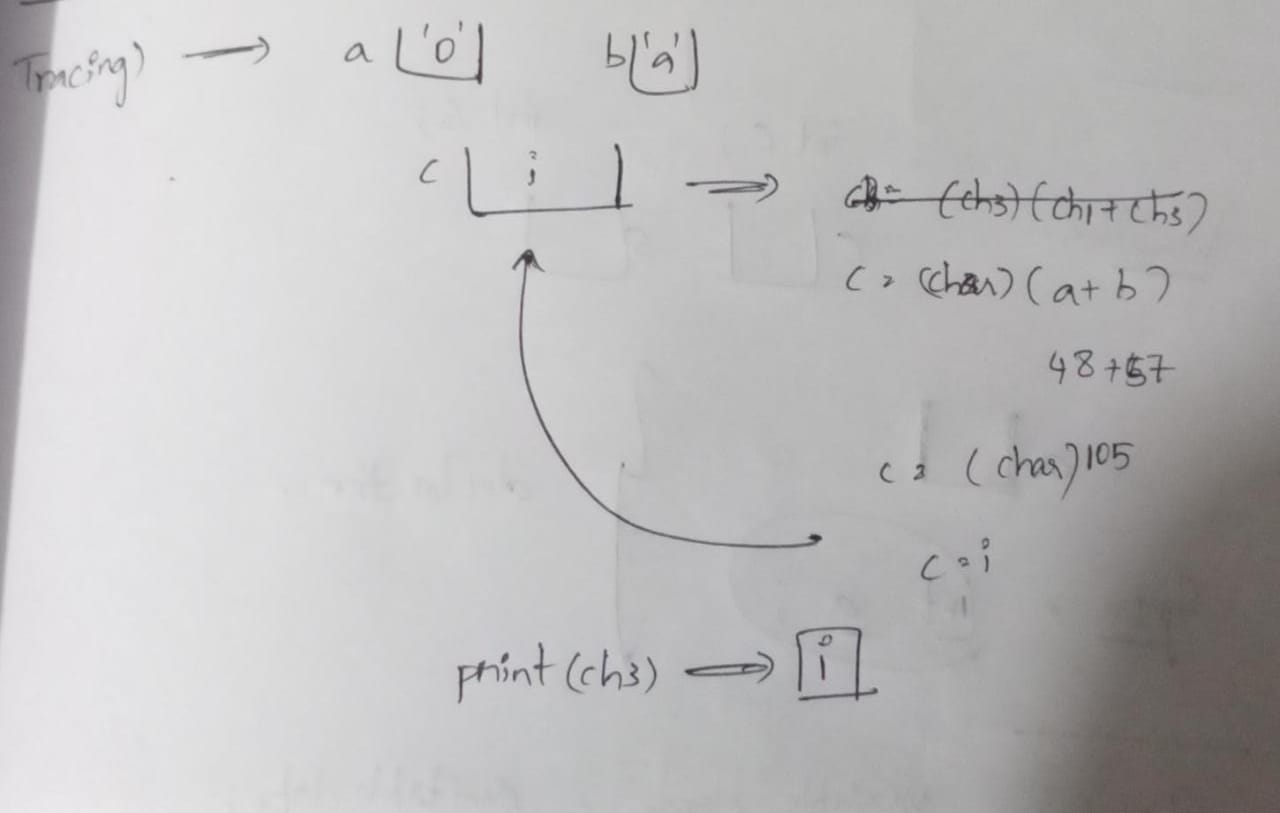 Tracing) → a '0' b 'a'
c i ⇒ (ch3)(ch1+ch3)
c = (char)(a+b)
48+57
c = (char)105
c = i
print(ch3) ⇒ i